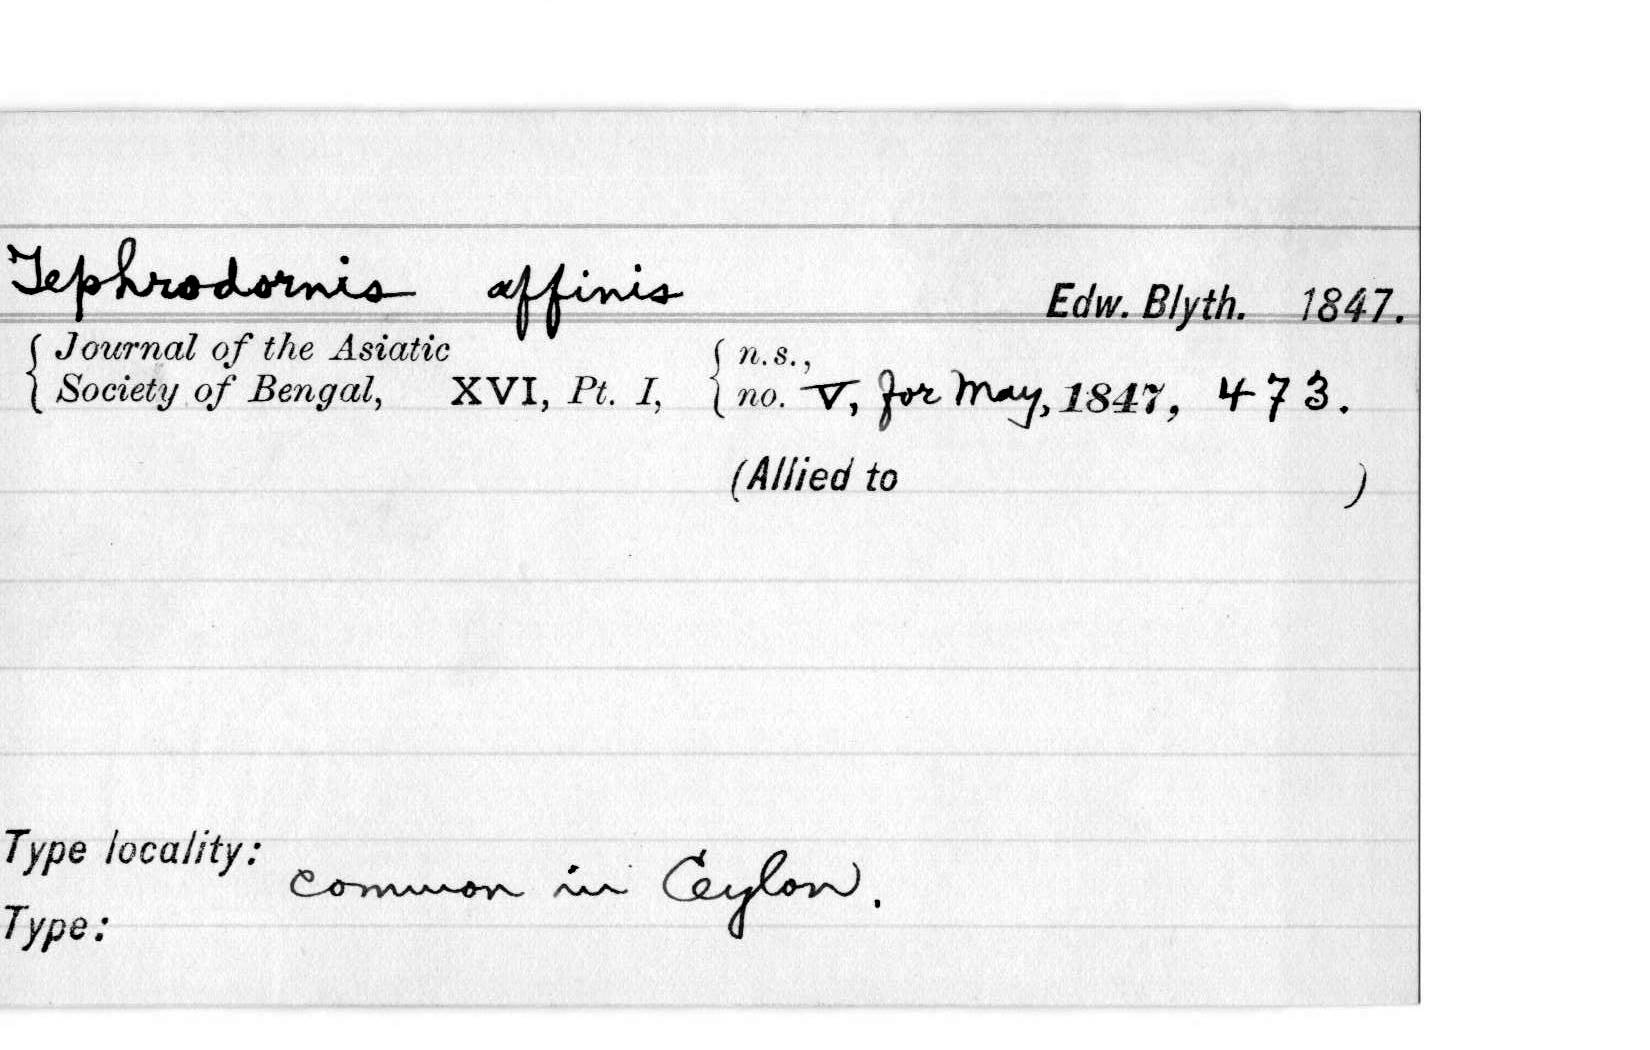 Tephrodornis affinis Edw. Blyth. 1847.
{ Journal of the Asiatic { n.s.,
{ Society of Bengal, XVI, Pt. I, { no. V, for May, 1847, 473.
(Allied to )
Type locality:
common in Ceylon.
Type: